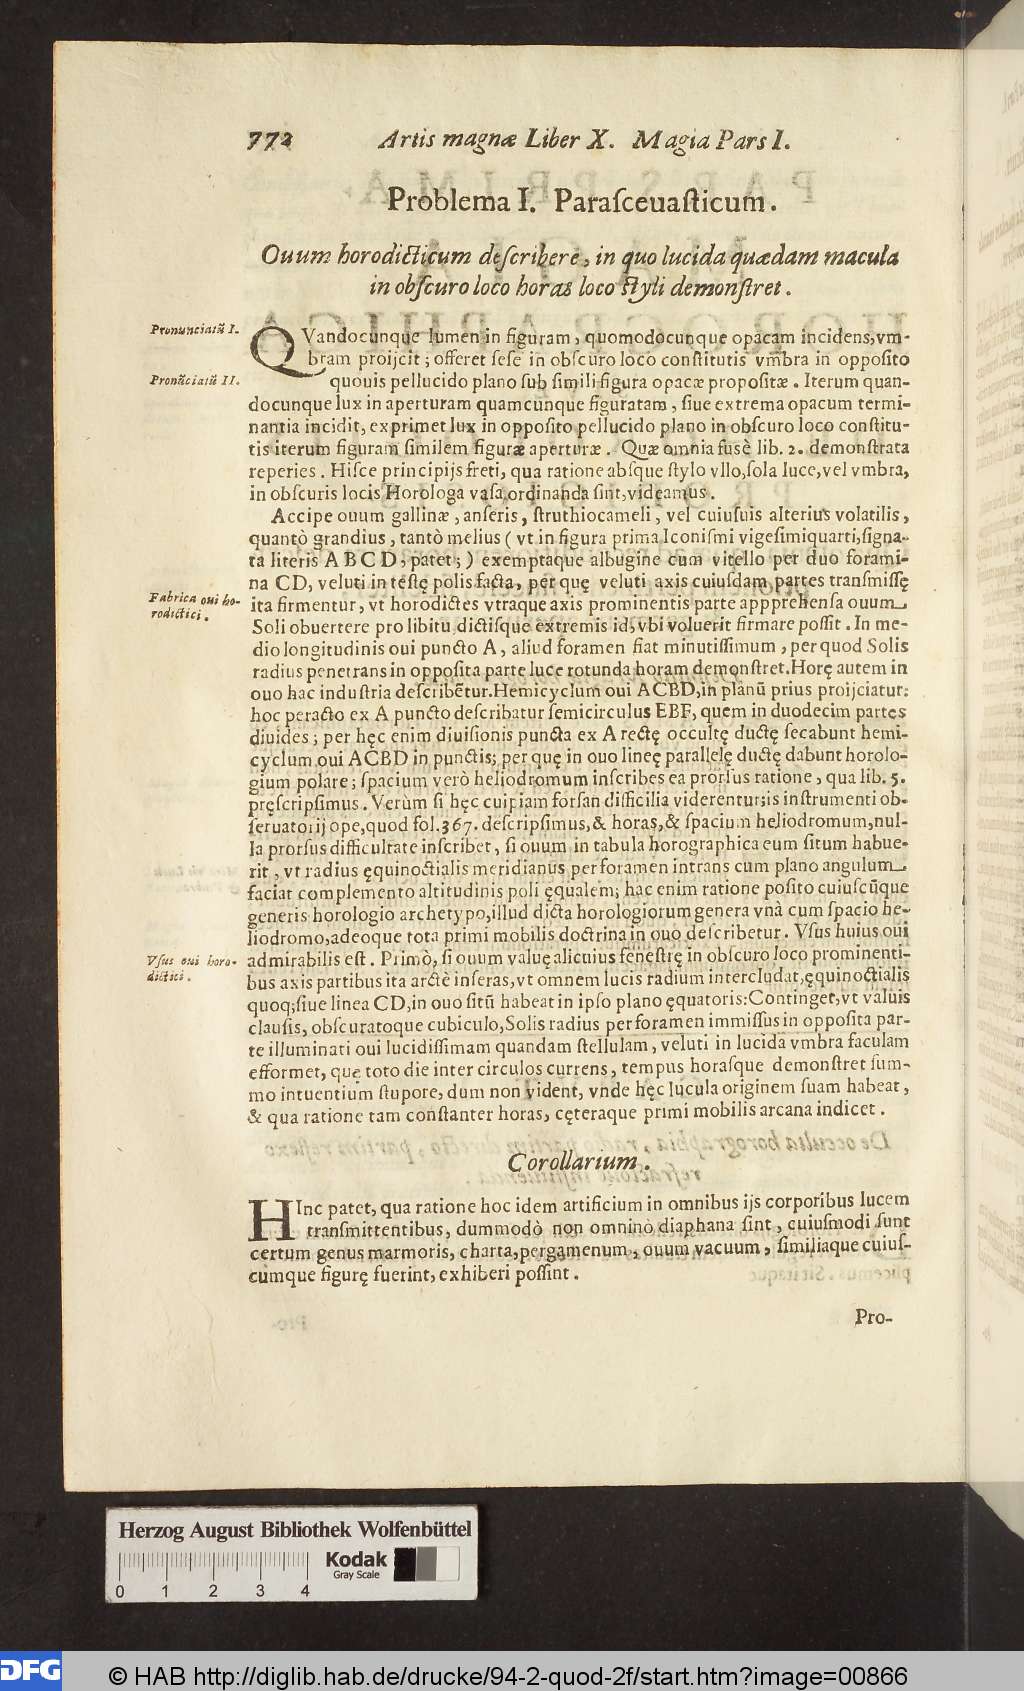 772 Artis magnæ Liber X. Magia Pars I.
Problema I. Paraſceuaſticum.
Ouum horodicticum deſcribere, in quo lucida quædam macula
in obſcuro loco horas loco ſtyli demonſtret.
Pronunciatũ I.
QVandocunque lumen in figuram, quomodocunque opacam incidens, vm-
bram proijcit; offeret ſeſe in obſcuro loco conſtitutis vmbra in oppoſito
Pronũciatũ II.
quouis pellucido plano ſub ſimili figura opacæ propoſitæ. Iterum quan-
documque lux in aperturam quamcunque figuratam, ſiue extrema opacum termi-
nantia incidit, exprimet lux in oppoſito pellucido plano in obſcuro loco conſtitu-
tis iterum figuram ſimilem figuræ aperturæ. Quæ omnia fusè lib. 2. demonſtrata
reperies. Hiſce principijs freti, qua ratione abſque ſtylo vllo, ſola luce, vel vmbra,
in obſcuris locis Horologa vaſa ordinanda ſint, videamus.
Accipe ouum gallinæ, anſeris, ſtruthiocameli, vel cuiuſuis alterius volatilis,
quantò grandius, tantò melius (vt in figura prima Iconiſmi vigeſimiquarti, ſigna-
ta literis A B C D, patet;) exemptaque albugine cum vitello per duo forami-
na CD, veluti in teſtę polis facta, per quę veluti axis cuiuſdam partes tranſmiſſę
Fabrica oui ho-
rodictici.
ita firmentur, vt horodictes vtraque axis prominentis parte appprehenſa ouum
Soli obuertere pro libitu, dictiſque extremis id, vbi voluerit firmare poſſit. In me-
dio longitudinis oui puncto A, aliud foramen fiat minutiſſimum, per quod Solis
radius penetrans in oppoſita parte luce rotunda horam demonſtret. Horę autem in
ouo hac induſtria deſcribẽtur. Hemicyclum oui ACBD, in planũ prius proijciatur;
hoc peracto ex A puncto deſcribatur ſemicirculus EBF, quem in duodecim partes
diuides; per hęc enim diuiſionis puncta ex A rectę occultę ductę ſecabunt hemi-
cyclum oui ACBD in punctis; per quę in ouo lineę parallelę ductę dabunt horolo-
gium polare; ſpacium verò heliodromum inſcribes ea prorſus ratione, qua lib. 5.
pręſcripſimus. Verùm ſi hęc cuipiam forſan difficilia viderentur; is inſtrumenti ob-
ſeruatorij ope, quod fol. 367. deſcripſimus, & horas, & ſpacium heliodromum, nul-
la prorſus difficultate inſcribet, ſi ouum in tabula horographica eum ſitum habue-
rit, vt radius ęquinoctialis meridianus per foramen intrans cum plano angulum
faciat complemento altitudinis poli ęqualem; hac enim ratione poſito cuiuſcũque
generis horologio archetypo, illud dicta horologiorum genera vnà cum ſpacio he-
liodromo, adeoque tota primi mobilis doctrina in ouo deſcribetur. Vſus huius oui
Vſus oui horo-
dictici.
admirabilis eſt. Primò, ſi ouum valuę alicuius feneſtrę in obſcuro loco prominenti-
bus axis partibus ita arctè inſeras, vt omnem lucis radium intercludat, ęquinoctialis
quoq; ſiue linea CD, in ouo ſitũ habeat in ipſo plano ęquatoris: Continget, vt valuis
clauſis, obſcuratoque cubiculo, Solis radius per foramen immiſſus in oppoſita par-
te illuminati oui lucidiſſimam quandam ſtellulam, veluti in lucida vmbra faculam
efformet, quę toto die inter circulos currens, tempus horaſque demonſtret ſum-
mo intuentium ſtupore, dum non vident, vnde hęc lucula originem ſuam habeat,
& qua ratione tam conſtanter horas, cęteraque primi mobilis arcana indicet.
Corollarium.
HInc patet, qua ratione hoc idem artificium in omnibus ijs corporibus lucem
tranſmittentibus, dummodò non omninò diaphana ſint, cuiuſmodi ſunt
certum genus marmoris, charta, pergamenum, ouum vacuum, ſimiliaque cuiuſ-
cumque figurę fuerint, exhiberi poſſint.
Pro-
Herzog August Bibliothek Wolfenbüttel
Kodak
Gray Scale
0 1 2 3 4
DFG © HAB http://diglib.hab.de/drucke/94-2-quod-2f/start.htm?image=00866